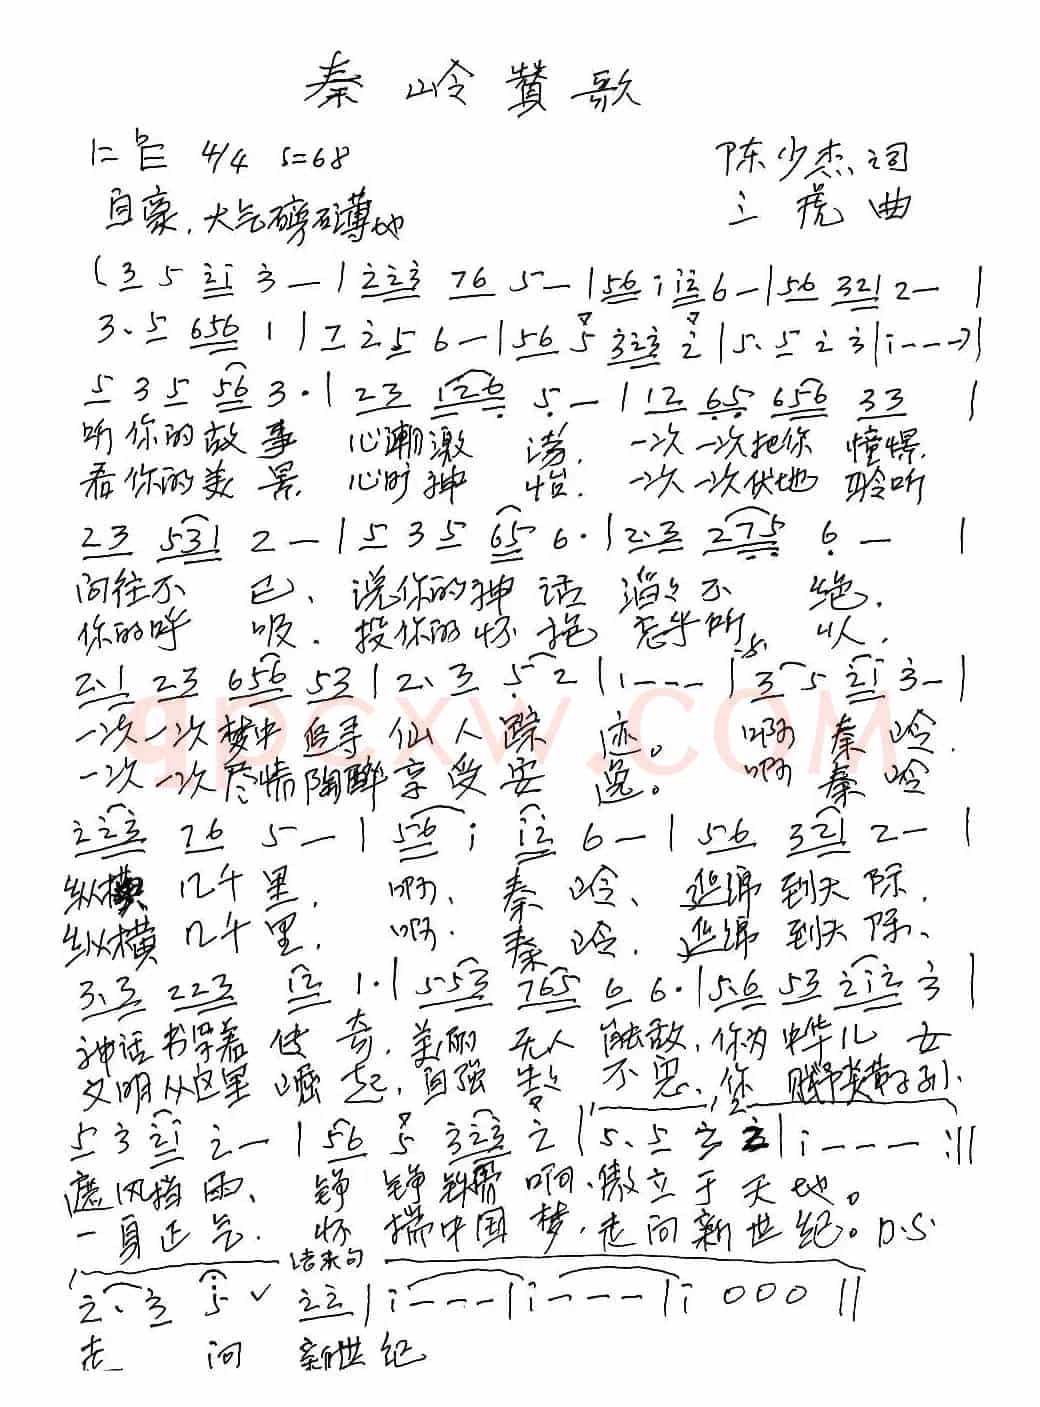 秦岭赞歌
1=bE 4/4 ♩=68 陈少杰词
自豪、大气磅礴地 三虎曲
(3 5 2i 3 — | 223 76 5 — | 56 i i2 6 — | 56 321 2 — |
3. 5 656 1 | 7 2 5 6 — | 56 5 323 2 | 5. 5 2 3 | i - - -) |
5 3 5 56 3 . | 23 126 5 — | 12 65 656 33 |
听你的故事 心潮激荡. 一次一次把你 憧憬.
看你的美景 心旷神怡. 一次一次伏地 聆听
23 531 2 — | 5 3 5 65 6 . | 2.3 275 6 — |
向往不已、说你的神话 滔々不绝.
你的呼吸. 投你的怀抱 怎乎所以.
2.1 23 656 53 | 2. 3 5 2 | 1 - - - | 3 5 2i 3 - |
一次一次梦中追寻 仙人踪迹。 啊 秦岭.
一次一次尽情陶醉 享受安逸。 啊 秦岭
223 76 5 — | 56 i i2 6 — | 56 321 2 — |
纵横几千里. 啊、秦岭、延绵到天际.
纵横几千里. 啊. 秦岭. 延绵到天际、
3.3 223 i2 1 . | 553 765 6 6 . | 5.6 53 2i2 3 |
神话书写着传奇. 美丽无人能敌. 你为中华儿女
文明从这里崛起. 自强生生不息. 你
5 3 2i 2 — | 56 5 323 2 | 5. 5 3 2 | i - - - - :||
遮风挡雨、铮铮铁骨啊、傲立于天地。
一身正气. 怀揣中国梦. 走向新世纪。D.S.
结束句
2. 3 5 ✓ 22 | i - - - | i - - - - | i 0 0 0 ||
走向新世纪
qpcxw.com